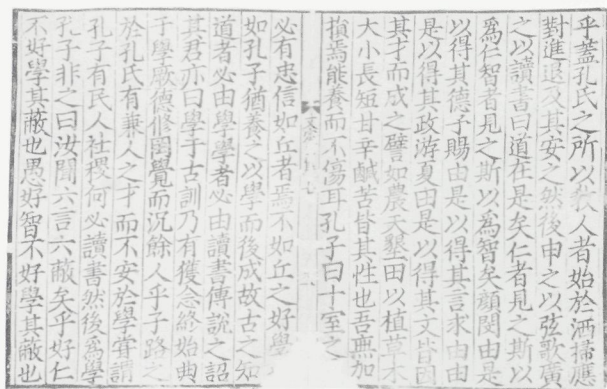 乎蓋孔氏之所以教人者始於洒掃應
對進退及其安之然後申之以弦歌廣
之以讀書曰道在是矣仁者見之斯以
為仁智者見之斯以為智矣顏閔由是
以得其德予賜由是以得其言求由由
是以得其政游夏由是以得其文皆因
其才而成之譬如農夫墾田以植草木
大小長短甘辛鹹苦皆其性也吾無加
損焉能養而不傷耳孔子曰十室之
必有忠信如丘者焉不如丘之好學
如孔子猶養之以學而後成故古之知
道者必由學學者必由讀書傳說之詔
其君亦曰學于古訓乃有獲念終始典
于學厥德修罔覺而況餘人乎子路之
於孔氏有兼人之才而不安於學嘗謂
孔子有民人社稷何必讀書然後為學
孔子非之曰汝聞六言六蔽矣乎好仁
不好學其蔽也愚好智不好學其蔽也